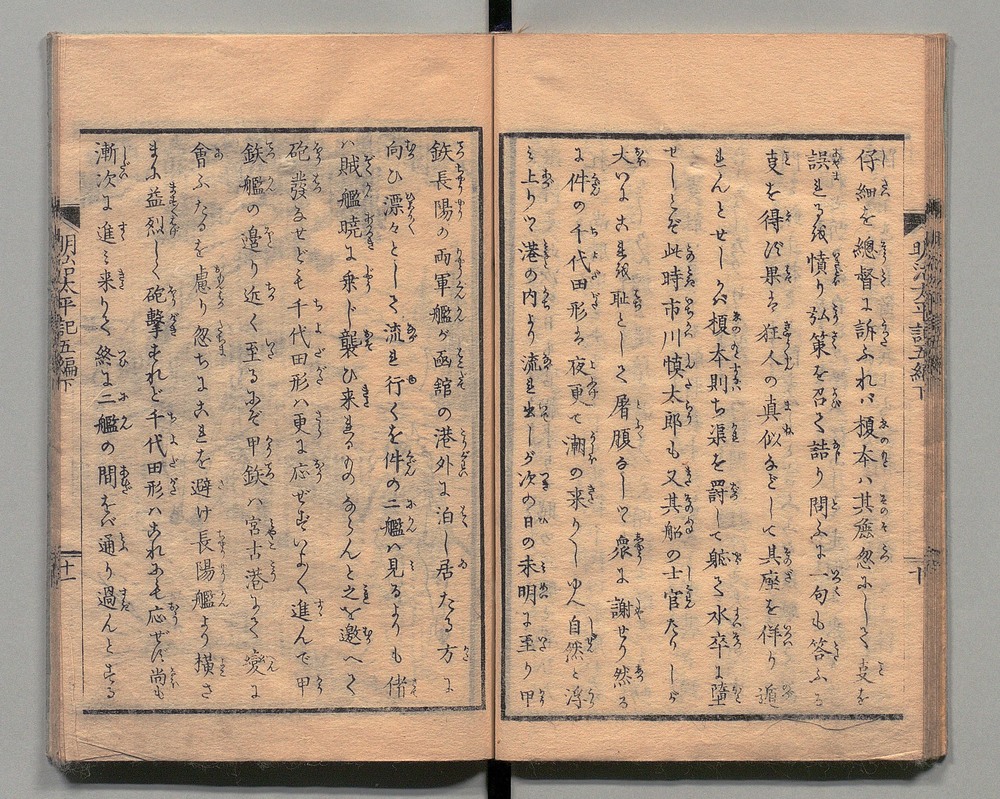 仔細を總督に訴ふれバ榎本ハ其麁忽にして支を
誤まるを憤り弘策を召て詰り問ふに一句も答ふる
支を得ず果ハ狂人の真似などして其座を佯り遁
れんとせしかバ榎本則ち渠を罸して貶く水卒に墮
せしとぞ此時市川慎太郎も又其船の士官たりしが
大いにこれを恥として屠腹なして衆に謝せり然る
に件の千代田形ハ夜更て潮の来りしゆへ自然と浮
み上りて港の内より流れ出しが次の日の未明に至り甲
鉄長陽の両軍艦が函館の港外に泊し居たる方に
向ひ漂々として流れ行くを件の二艦ハ見るよりも偖
ハ賊艦暁に乗じ襲ひ来れるものならんと之を邀へて
砲發なせども千代田形ハ更に応ぜずいよく進んで甲
鉄艦の邉り近く至るにぞ甲鉄ハ宮古港にて變に
會ふたるを慮り忽ちにこれを避け長陽艦より横さ
まに益烈しく砲撃すれど千代田形ハこれにも応ぜず尚も
漸次に進み来りて終に二艦の間をバ通り過んとする
明治太平記五編下
十
明治太平記五編下
十一